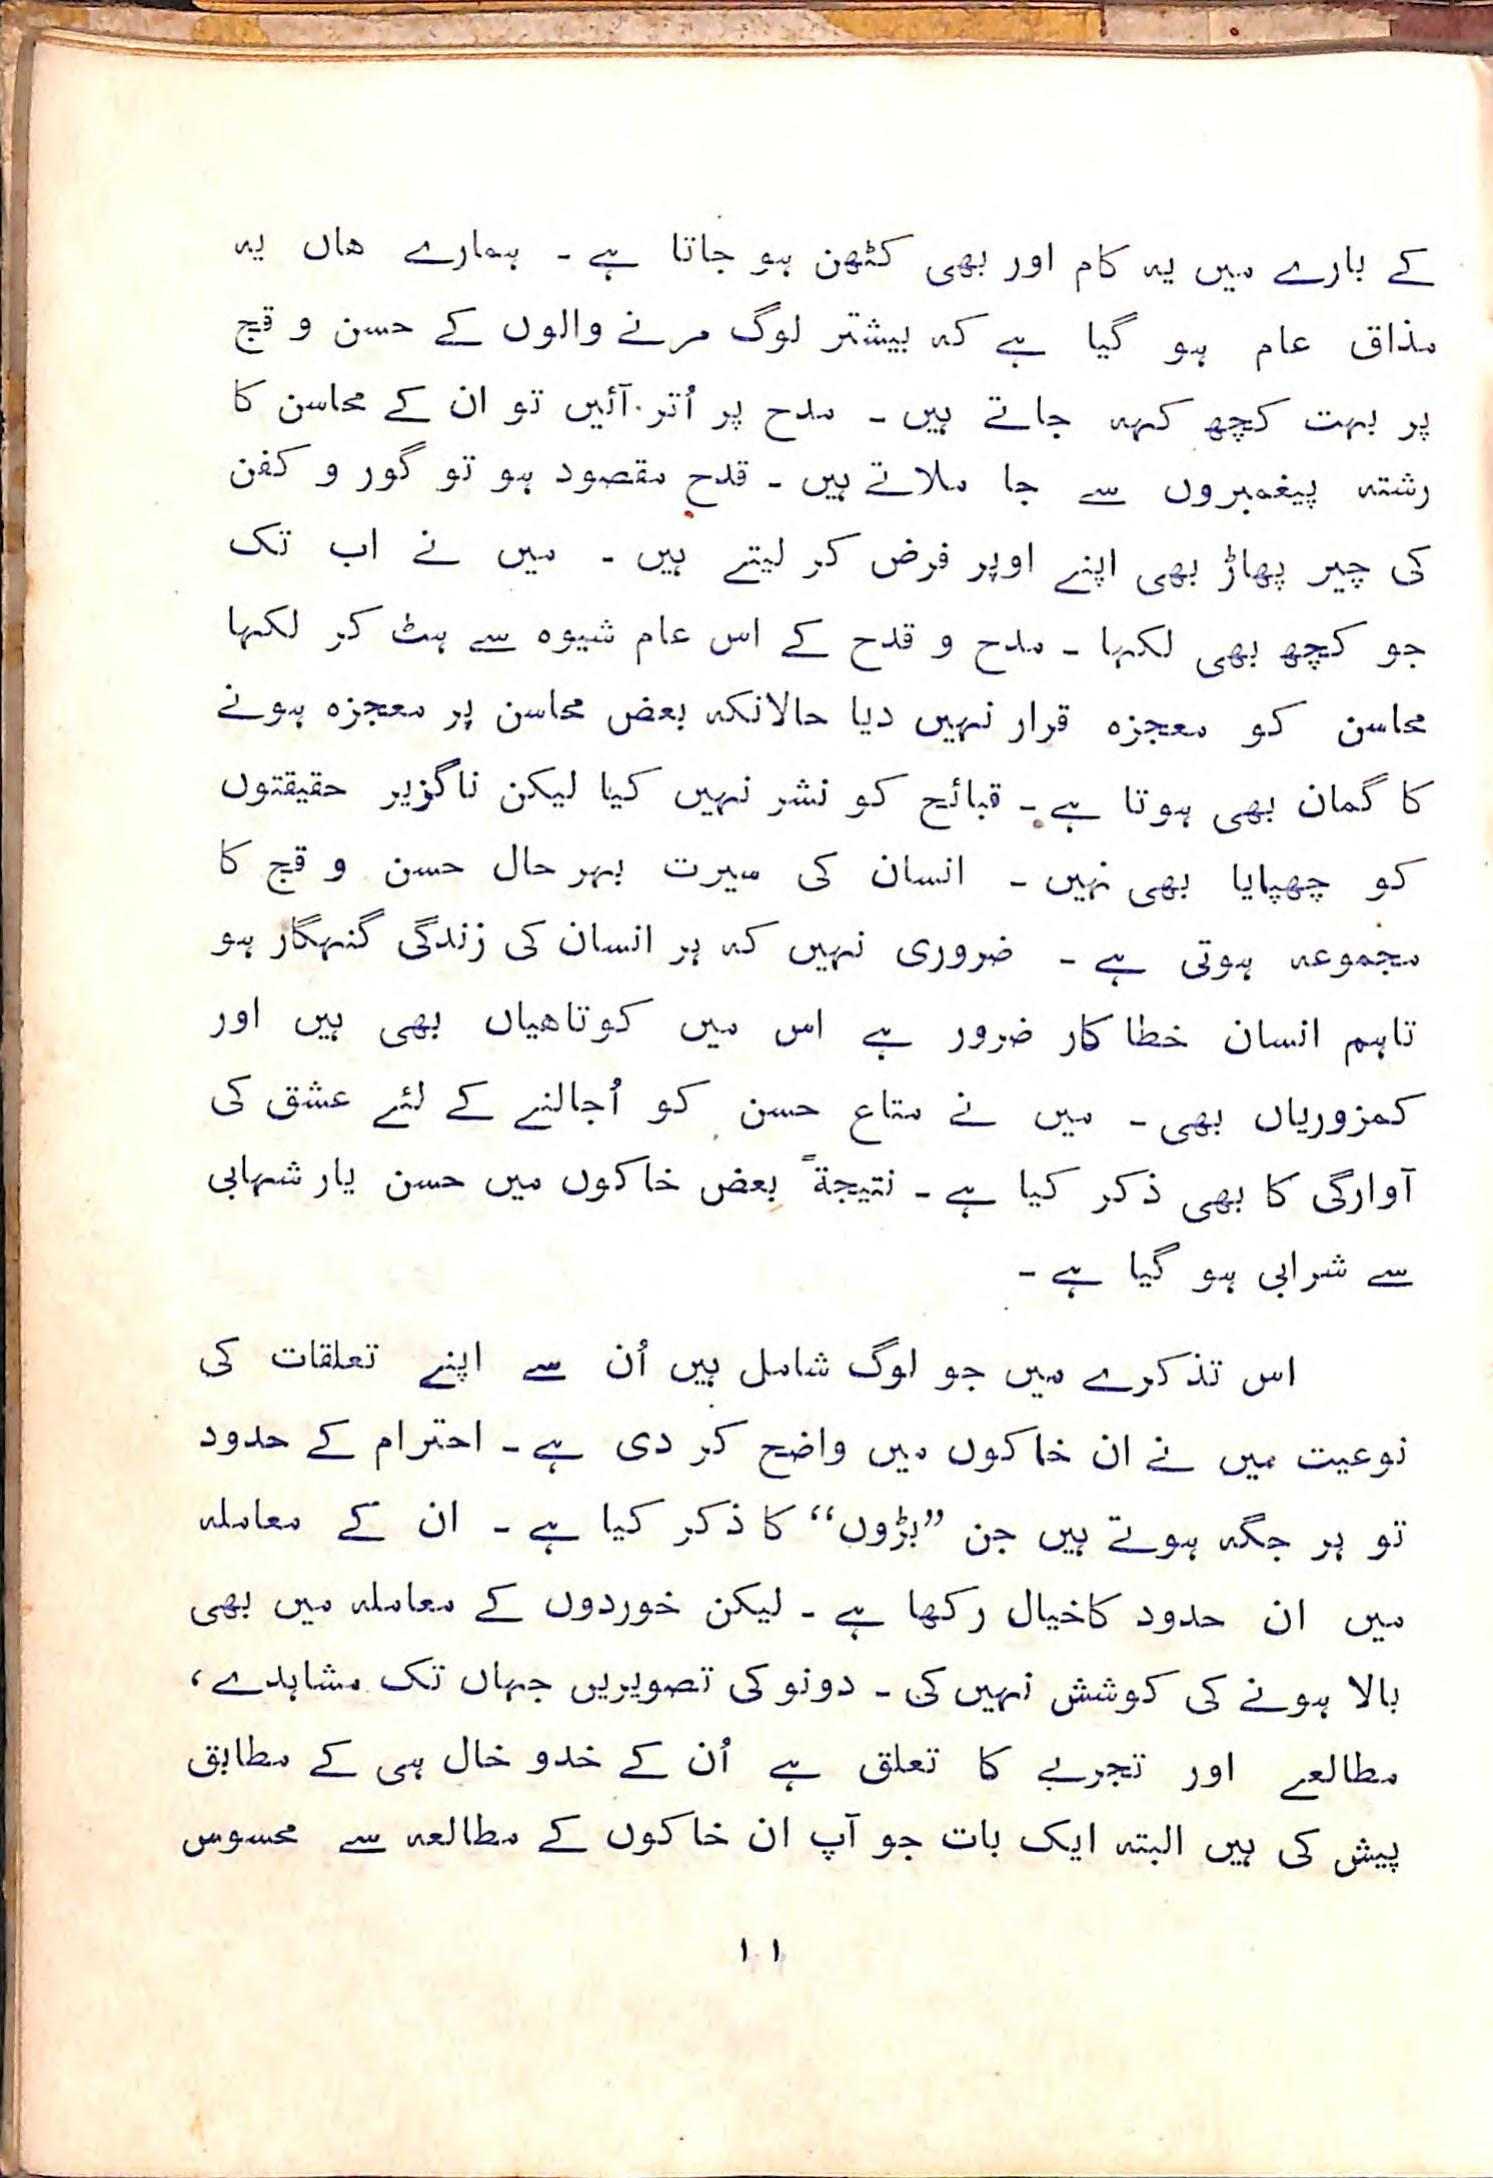 کے بارے میں یہ کام اور بھی کٹھن ہو جاتا ہے ۔ ہمارے ھاں یہ
مذاق عام ہو گیا ہے کہ بیشتر لوگ مرنے والوں کے حسن و قبح
پر بہت کچھ کہہ جاتے ہیں ۔ مدح پر اُتر آئیں تو ان کے محاسن کا
رشتہ پیغمبروں سے جا ملاتے ہیں ۔ قدح مقصود ہو تو گور و کفن
کی چیر پھاڑ بھی اپنے اوپر فرض کر لیتے ہیں ۔ میں نے اب تک
جو کچھ بھی لکہا ۔ مدح و قدح کے اس عام شیوہ سے ہٹ کر لکہا
محاسن کو معجزہ قرار نہیں دیا حالانکہ بعض محاسن پر معجزہ ہونے
کا گمان بھی ہوتا ہے ۔ قبائح کو نشر نہیں کیا لیکن ناگزیر حقیقتوں
کو چھپایا بھی نہیں ۔ انسان کی سیرت بہر حال حسن و قبح کا
مجموعہ ہوتی ہے ۔ ضروری نہیں کہ ہر انسان کی زندگی گنہگار ہو
تاہم انسان خطا کار ضرور ہے اس میں کوتاھیاں بھی ہیں اور
کمزوریاں بھی ۔ میں نے متاع حسن کو اُجالنے کے لئے عشق کی
آوارگی کا بھی ذکر کیا ہے ۔ نتیجۃً بعض خاکوں میں حسن یار شہابی
سے شرابی ہو گیا ہے ۔
اس تذکرے میں جو لوگ شامل ہیں اُن سے اپنے تعلقات کی
نوعیت میں نے ان خاکوں میں واضح کر دی ہے ۔ احترام کے حدود
تو ہر جگہ ہوتے ہیں جن ”بڑوں“ کا ذکر کیا ہے ۔ ان کے معاملہ
میں ان حدود کاخیال رکھا ہے ۔ لیکن خوردوں کے معاملہ میں بھی
بالا ہونے کی کوشش نہیں کی ۔ دونو کی تصویریں جہاں تک مشاہدے ،
مطالعے اور تجربے کا تعلق ہے اُن کے خدو خال ہی کے مطابق
پیش کی ہیں البتہ ایک بات جو آپ ان خاکوں کے مطالعہ سے محسوس
۱۱